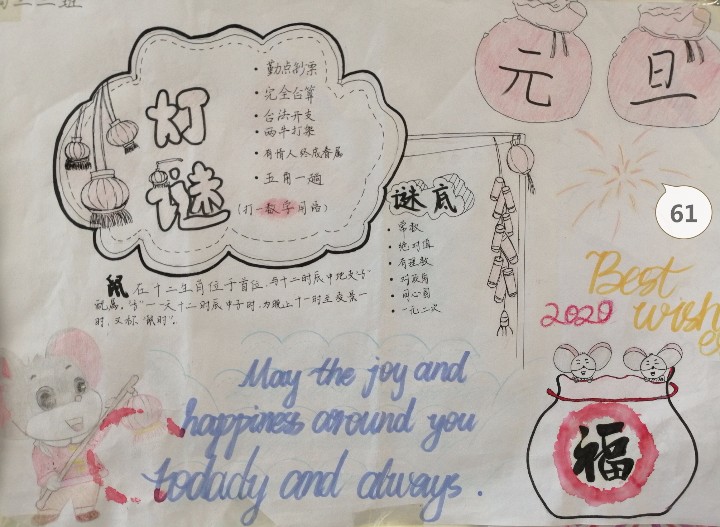 元旦
61
灯谜
• 勤点钞票
• 完全合算
• 合法开支
• 两牛打架
• 有情人终成眷属
• 五角一趟
(打一数学用语)
谜底
• 常数
• 绝对值
• 有理数
• 对顶角
• 同心圆
• 一元二次
鼠在十二生肖位于首位,与十二时辰中地支"子"
配属。"子"一天十二时辰中子时,为晚上十一时至凌晨一
时,又称"鼠时"。
Best
2020 wish
es
May the joy and
happiness around you
todady and always.
福